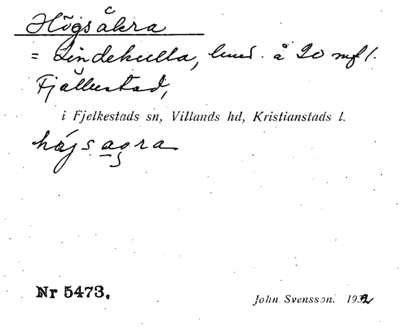 Högsåkra
= Lindekulla, hmd. å 20 mfl.
Fjälkestad,
i Fjelkestads sn, Villands hd, Kristianstads l.
hájsagra
Nr 5473.
John Svensson. 1932